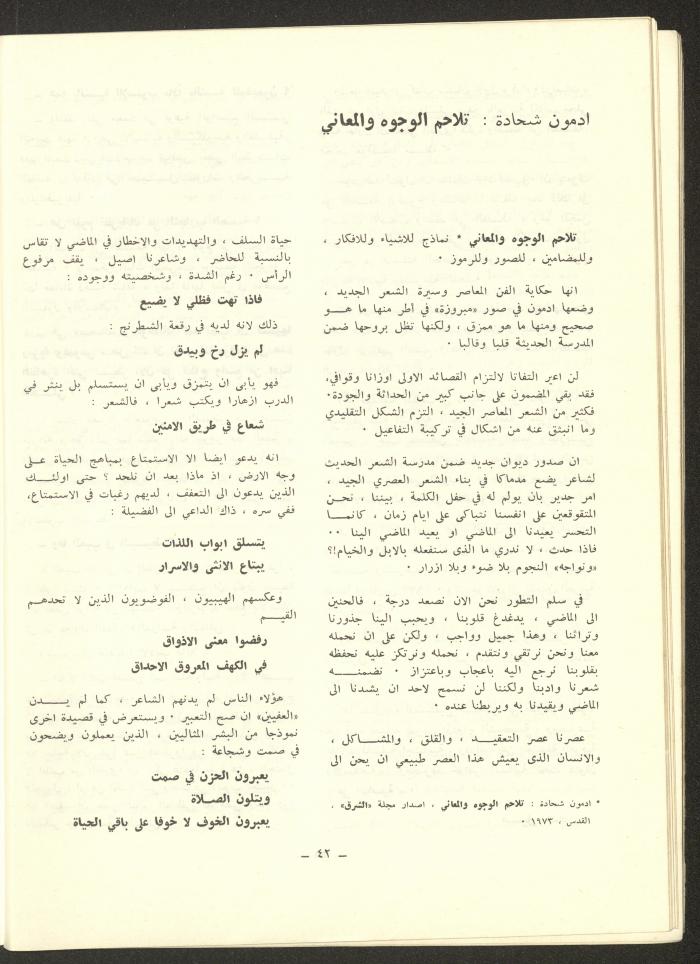 ادمون شحادة : تلاحم الوجوه والمعاني
تلاحم الوجوه والمعاني * نماذج للاشياء وللافكار ،
وللمضامين ، للصور وللرموز .
انها حكاية الفن المعاصر وسيرة الشعر الجديد ،
وضعها ادمون في صور «مبروزة» في أطر منها ما هـــو
صحيح ومنها ما هو ممزق ، ولكنها تظل بروحها ضمن
المدرسة الحديثة قلبا وقالبا .
لن اعير التفاتا لالتزام القصائد الاولى اوزانا وقوافي،
فقد بقي المضمون على جانب كبير من الحداثة والجودة.
فكثير من الشعر المعاصر الجيد ، التزم الشكل التقليدي
وما انبثق عنه من اشكال في تركيبة التفاعيل .
ان صدور ديوان جديد ضمن مدرسة الشعر الحديث
لشاعر يضع مدماكا في بناء الشعر العصري الجيد ،
امر جدير بان يولم له في حفل الكلمة ، بيننا ، نحـن
المتقوقعين على انفسنا نتباكى على ايام زمان ، كانمـــا
التحسر يعيدنا الى الماضي او يعيد الماضي الينا ..
فاذا حدث ، لا ندري ما الذى سنفعله بالابل والخيام!؟
«ونواجه» النجوم بلا ضوء وبلا ازرار .
في سلم التطور نحن الان نصعد درجة ، فالحنين
الى الماضي ، يدغدغ قلوبنا ، ويحبب الينا جذورنا
وتراثنا ، وهذا جميل وواجب ، ولكن على ان نحمله
معنا ونحن نرتقي ونتقدم ، نحمله ونرتكز عليه نحفظه
بقلوبنا نرجع اليه باعجاب وباعتزاز . نضمنـــــه
شعرنا وادبنا ولكننا لن نسمح لاحد ان يشدنا الى
الماضي ويقيدنا به ويربطنا عنده .
عصرنا عصر التعقيـــد ، والقلق ، والمشـــاكل ،
والانسان الذى يعيش هذا العصر طبيعي ان يحن الى
* ادمون شحادة : تلاحم الوجوه والمعاني ، اصدار مجلة «الشرق» ،
القدس ، ١٩٧٣ .
حياة السلف ، والتهديدات والاخطار في الماضي لا تقاس
بالنسبة للحاضر ، وشاعرنا اصيل ، يقف مرفوع
الرأس . رغم الشدة ، وشخصيته ووجوده :
فاذا تهت فظلي لا يضيع
ذلك لانه لديه في رقعة الشطرنج :
لم يزل رخ وبيدق
فهو يأبى ان يتمزق ويأبى ان يستسلم بل ينثر في
الدرب ازهارا ويكتب شعرا ، فالشعر :
شعاع في طريق الامنين
انه يدعو ايضا الا الاستمتاع بمباهج الحياة علــى
وجه الارض ، اذ ماذا بعد ان نلحد ؟ حتى اولئـــك
الذين يدعون الى التعفف ، لديهم رغبات في الاستمتاع،
ففي سره ، ذاك الداعي الى الفضيلة :
يتسلق ابواب اللذات
يبتاع الانثى والاسرار
وعكسهم الهيبيون ، الفوضويون الذين لا تحدهــم
القيــــم
رفضوا معنى الاذواق
في الكهف المعروق الاحداق
هؤلاء الناس لم يدنهم الشاعر ، كما لم يـــــدن
«العفيين» ان صح التعبير . ويستعرض في قصيدة اخرى
نموذجا من البشر المثاليين ، الذين يعملون ويضحون
في صمت وشجاعة :
يعبرون الحزن في صمت
ويتلون الصــلاة
يعبرون الخوف لا خوفا على باقي الحياة
— ٤٢ —